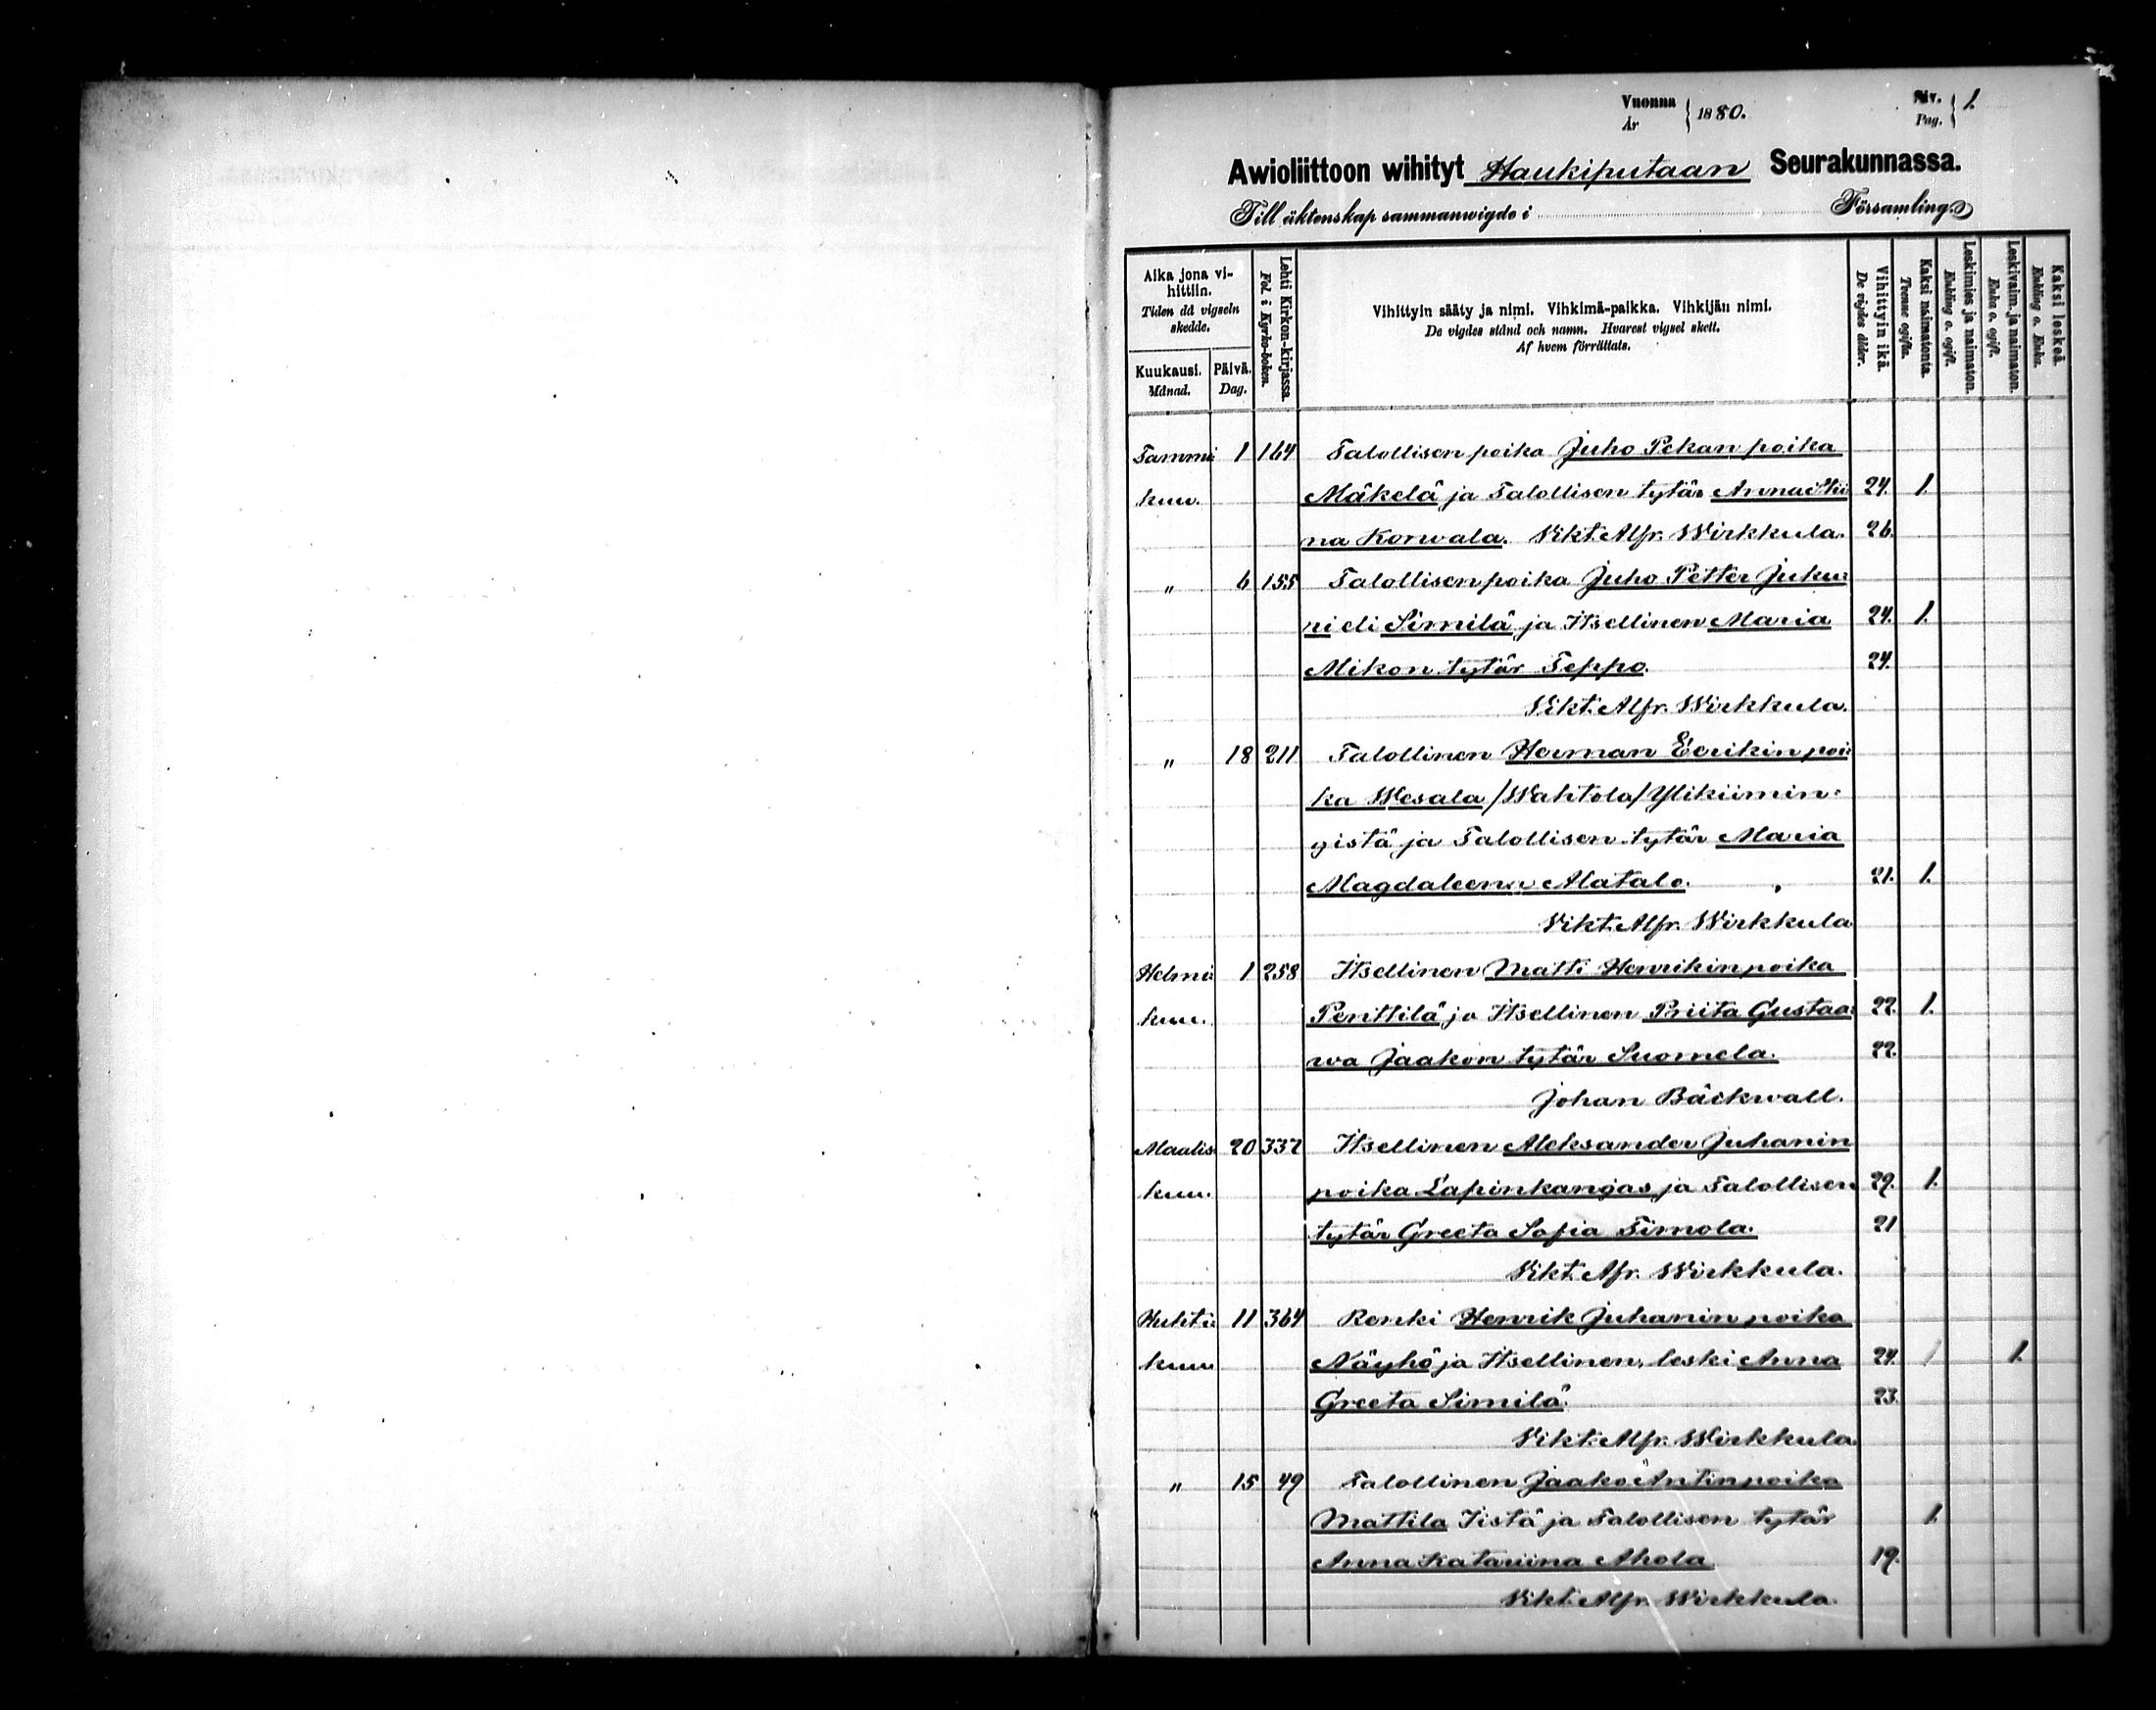 Vuonna År } 1880.
Siv. Pag. } 1.
Awioliittoon wihityt Haukiputaan Seurakunnassa.
Till äktenskap sammanwigde i Församling.
Aika jona vihittiin.
Tiden då vigseln skedde.
Kuukausi. Månad.
Päivä. Dag.
Lehti Kirkon-kirjassa.
Fol. i Kyrko-boken.
Vihittyin sääty ja nimi. Vihkimä-paikka. Vihkijän nimi.
De vigdes stånd och namn. Hvarest vigsel skett.
Af hvem förrättats.
Vihittyin ikä.
De vigdes ålder.
Kaksi naimatonta.
Tvenne ogifta.
Leskimies ja naimaton.
Enkling o. ogift.
Leskivaim. ja naimaton.
Enka o. ogift.
Kaksi leskeä.
Enkling o. Enka.
Tammi 1 164 Talollisen poika Juho Pekan poika
kuu. Mäkelä ja Talollisen tytär Anna Mii 24. 1.
na Korwala. Vikt. Alfr. Wirkkula. 26.
" 6 155 Talollisen poika Juho Petter Juku:
ri eli Similä ja Itsellinen Maria 24. 1.
Mikon tytär Teppo. 24.
Vikt. Alfr. Wirkkula.
" 18 211 Talollinen Herman Eerikin poi:
ka Wesala /Wahtola/ Ylikiimin:
gistä ja Talollisen tytär Maria
Magdaleena Alatalo. 21. 1.
Vikt. Alfr. Wirkkula
Helmi: 1 258 Itsellinen Matti Henrikin poika
kuu. Penttilä ja Itsellinen Priita Gustaa: 22. 1.
wa Jaakon tytär Suomela. 22.
Johan Bäckwall.
Maalis 20 332 Itsellinen Aleksander Juhanin
kuu. poika Lapinkangas ja Talollisen 29. 1.
tytär Greeta Sofia Timola. 21
Vikt. Alfr. Wirkkula.
Huhti: 11 364 Renki Henrik Juhanin poika
kuu Näyhö ja Itsellinen, leski Anna 24. 1 1.
Greeta Similä. 23.
Vikt. Alfr. Wirkkula
" 15 49 Talollinen Jaako Antin poika
Mattila Iistä ja Talollisen tytär 1.
Anna Katariina Ahola 19.
Vikt. Alfr. Wirkkula.